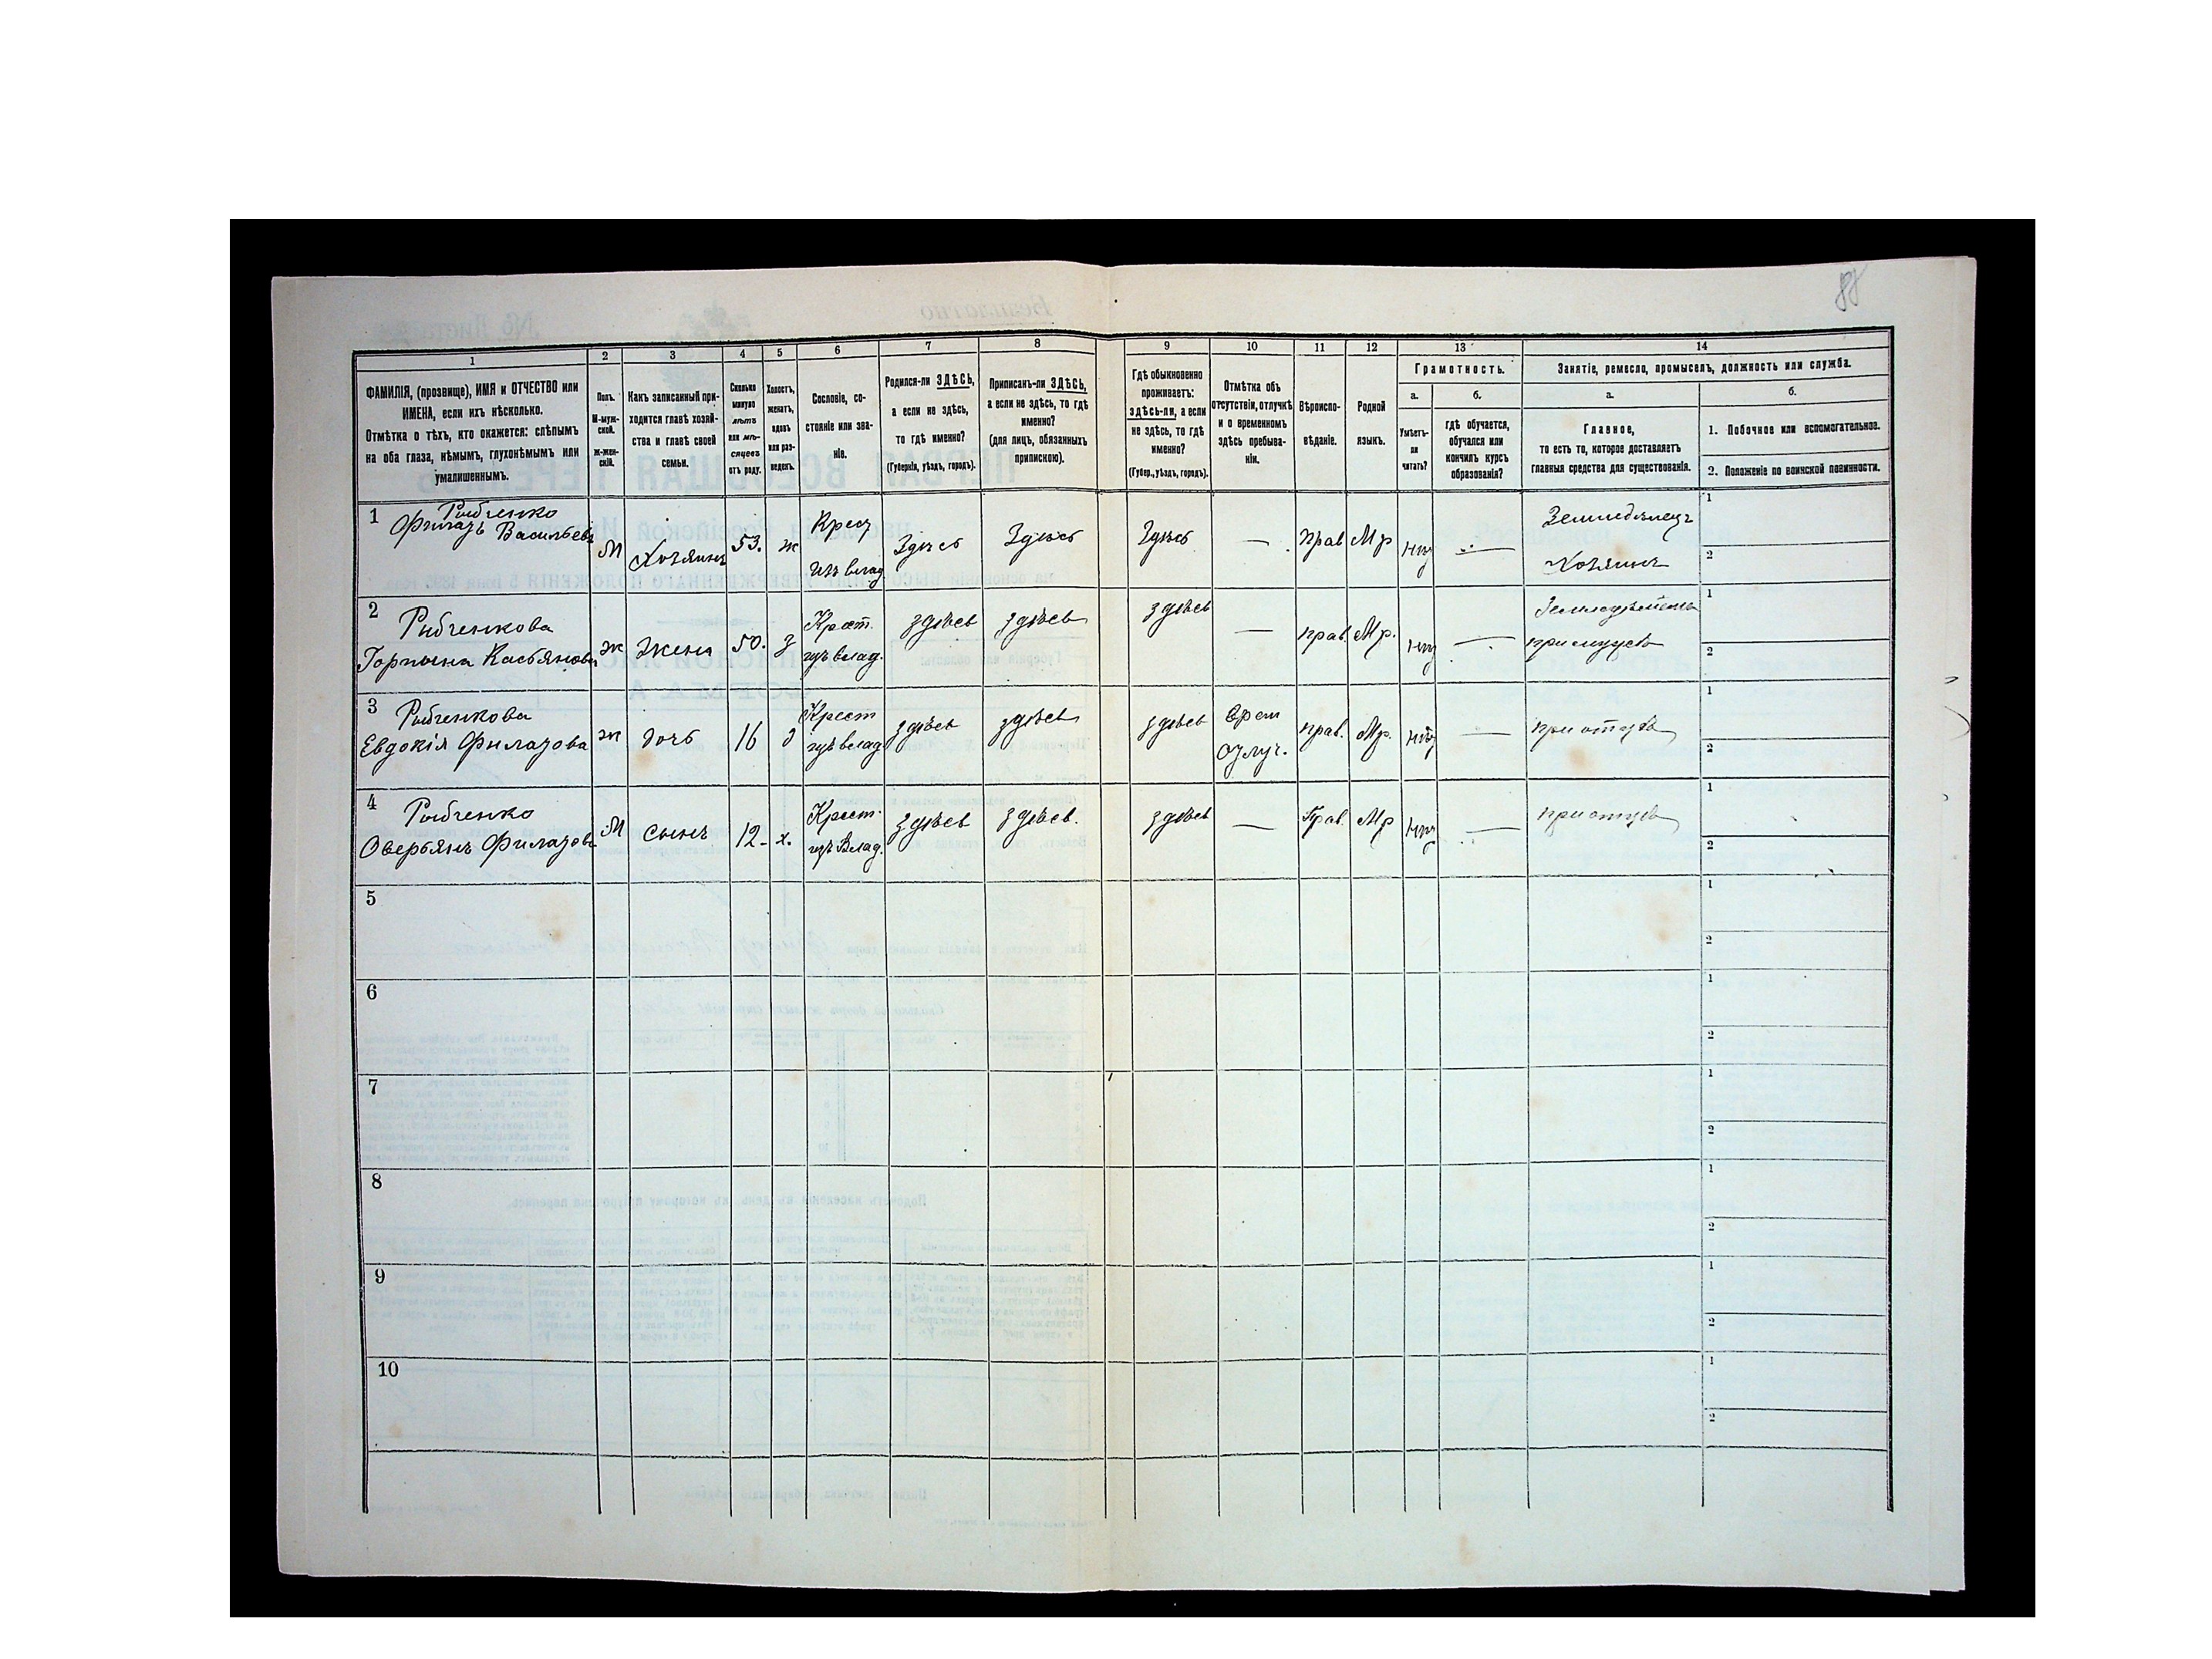 88
1 2 3 4 5 6 7 8 9 10 11 12 13 14
ФАМИЛІЯ, (прозвище), ИМЯ и ОТЧЕСТВО или
ИМЕНА, если ихъ нѣсколько.
Отмѣтка о тѣхъ, кто окажется: слѣпымъ
на оба глаза, нѣмымъ, глухонѣмымъ или
умалишеннымъ.
Полъ.
М-муж-
ской.
ж-жен-
скій.
Какъ записанный при-
ходится главѣ хозяй-
ства и главѣ своей
семьи.
Сколько
минуло
лѣтъ
или мѣ-
сяцевъ
отъ роду.
Холостъ,
женатъ,
вдовъ
или раз-
веденъ.
Сословіе, со-
стояніе или зва-
ніе.
Родился-ли ЗДѢСЬ,
а если не здѣсь,
то гдѣ именно?
(Губернія, уѣздъ, городъ).
Приписанъ-ли ЗДѢСЬ,
а если не здѣсь, то гдѣ
именно?
(для лицъ, обязанныхъ
припискою).
Гдѣ обыкновенно
проживаетъ:
здѣсь-ли, а если
не здѣсь, то гдѣ
именно?
(Губер., уѣздъ, городъ).
Отмѣтка объ
отсутствіи, отлучкѣ
и о временномъ
здѣсь пребыва-
ніи.
Вѣроиспо-
вѣданіе.
Родной
языкъ.
Грамотность.
а.
Умѣетъ-
ли
читать?
б.
гдѣ обучается,
обучался или
кончилъ курсъ
образованія?
Занятіе, ремесло, промыселъ, должность или служба.
а.
Главное,
то есть то, которое доставляетъ
главныя средства для существованія.
б.
1. Побочное или вспомогательное.
2. Положеніе по воинской повинности.
1 Рыбченко
Филатъ Васильевъ
М Хозяинъ 53. ж
Крест
изъ влад
Здѣсь Здѣсь Здѣсь — прав Мр нѣт —
Земледѣлецъ
Хозяинъ
1
2
2 Рибченкова
Горпына Касьянова
ж Жена 50. з
Крест.
изъ влад.
здѣсь здѣсь здѣсь — прав. Мр. нѣт —
при мужѣ
1
2
3 Рыбченкова
Евдокія Филатова
ж дочь 16 д
Крест
изъ влад
здѣсь здѣсь здѣсь
Врем
отлуч.
прав. Мр. нѣт —
при отцѣ
1
2
4 Рыбченко
Оверьянъ Филатовъ
М сынъ 12. х.
Крест.
изъ Влад.
здѣсь здѣсь. здѣсь — Прав. Мр нѣт —
при отцѣ
1
2
5
1
2
6
1
2
7
1
2
8
1
2
9
1
2
10
1
2